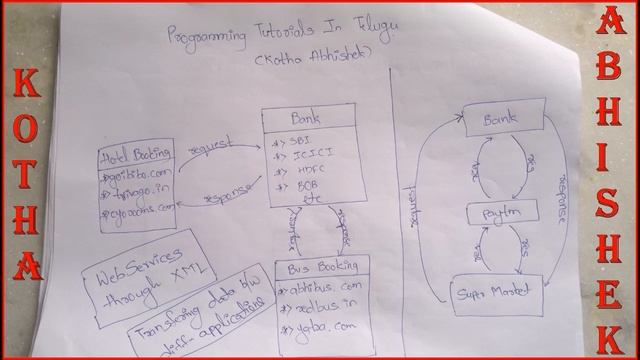 KOTHA
ABHISHEK
Programming Tutorials In Telugu
(Kotha Abhishek)
Hotel Booking
*> goibibo.com
*> trivago.in
*> oyorooms.com
request
response
Bank
*> SBI
*> ICICI
*> HDFC
*> BOB
etc
request
response
Bus Booking
*> abhibus.com
*> redbus.in
*> yatra.com
WebServices
through XML
Transfering data b/w
diff-applications
Bank
req
res
Paytm
req
res
Super Market
request
response